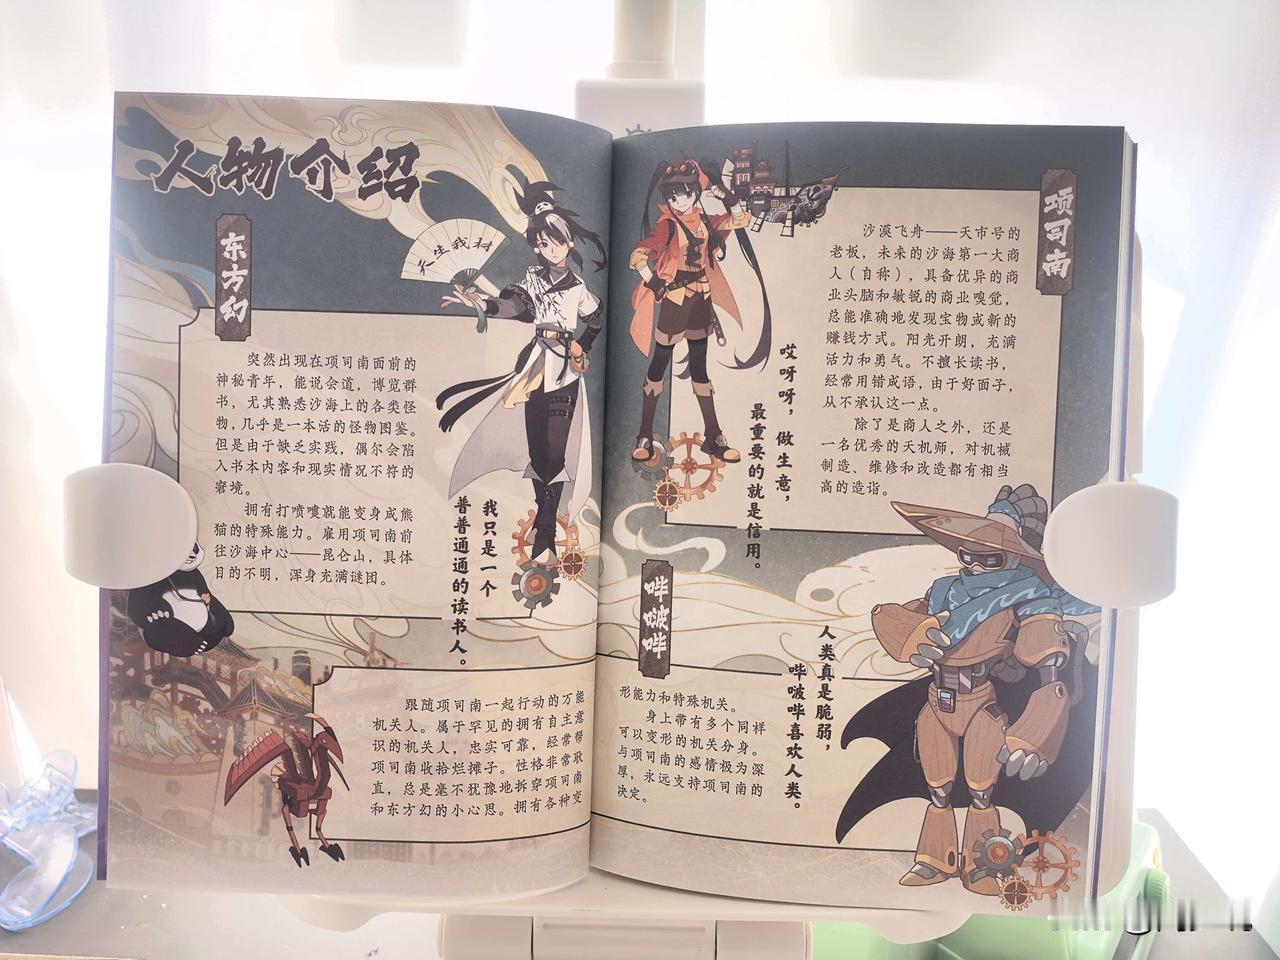 人物介绍
东方幻
天生我材
突然出现在项司南面前的
神秘青年，能说会道，博览群
书，尤其熟悉沙海上的各类怪
物，几乎是一本活的怪物图鉴。
但是由于缺乏实践，偶尔会陷
入书本内容和现实情况不符的
窘境。
拥有打喷嚏就能变身成熊
猫的特殊能力。雇用项司南前
往沙海中心——昆仑山，具体
目的不明，浑身充满谜团。
我只是一个
普普通通的读书人。
项司南
沙漠飞舟——天市号的
老板，未来的沙海第一大商
人（自称），具备优异的商
业头脑和敏锐的商业嗅觉，
总能准确地发现宝物或新的
赚钱方式。阳光开朗，充满
活力和勇气。不擅长读书，
经常用错成语，由于好面子，
从不承认这一点。
除了是商人之外，还是
一名优秀的天机师，对机械
制造、维修和改造都有相当
高的造诣。
哎呀呀，做生意，
最重要的就是信用。
哔啵哔
跟随项司南一起行动的万能
机关人。属于罕见的拥有自主意
识的机关人，忠实可靠，经常帮
项司南收拾烂摊子。性格非常耿
直，总是毫不犹豫地拆穿项司南
和东方幻的小心思。拥有各种变
形能力和特殊机关。
身上带有多个同样
可以变形的机关分身。
与项司南的感情极为深
厚，永远支持项司南的
决定。
人类真是脆弱，
哔啵哔喜欢人类。